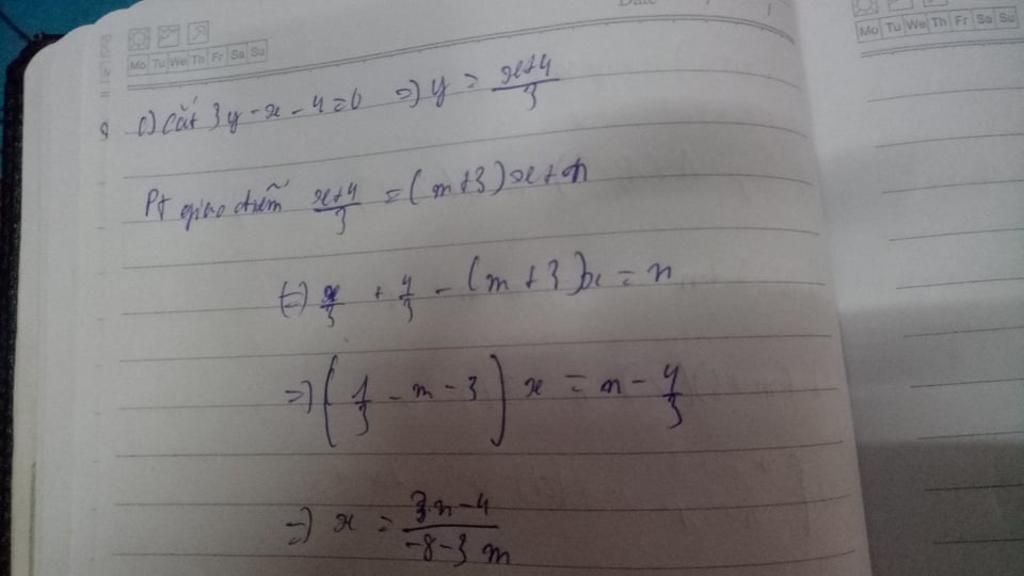 Date
Mo Tu We Th Fr Sa Su
Mo Tu We Th Fr Sa Su
c) Cắt 3y - x - 4 = 0 => y = (x+4)/3
Pt giao điểm (x+4)/3 = (m+3)x + n
(=) x/3 + 4/3 - (m+3)x = n
=> (1/3 - m - 3) x = n - 4/3
=> x = (3n-4)/(-8-3m)